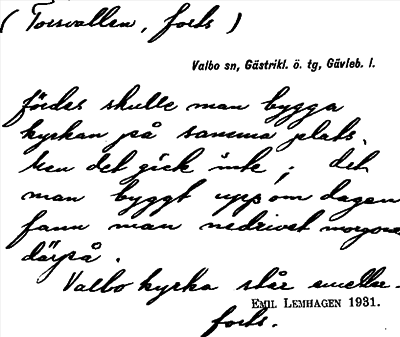 (Torsvallen, forts)
Valbo sn, Gästrikl. ö. tg, Gävleb. l.
fördes skulle man bygga
kyrkan på samma plats.
Men det gick inte; det
man byggt upp om dagen
fann man nedrivet morgonen
därpå.
Valbo kyrka står emeller-
EMIL LEMHAGEN 1931.
forts.